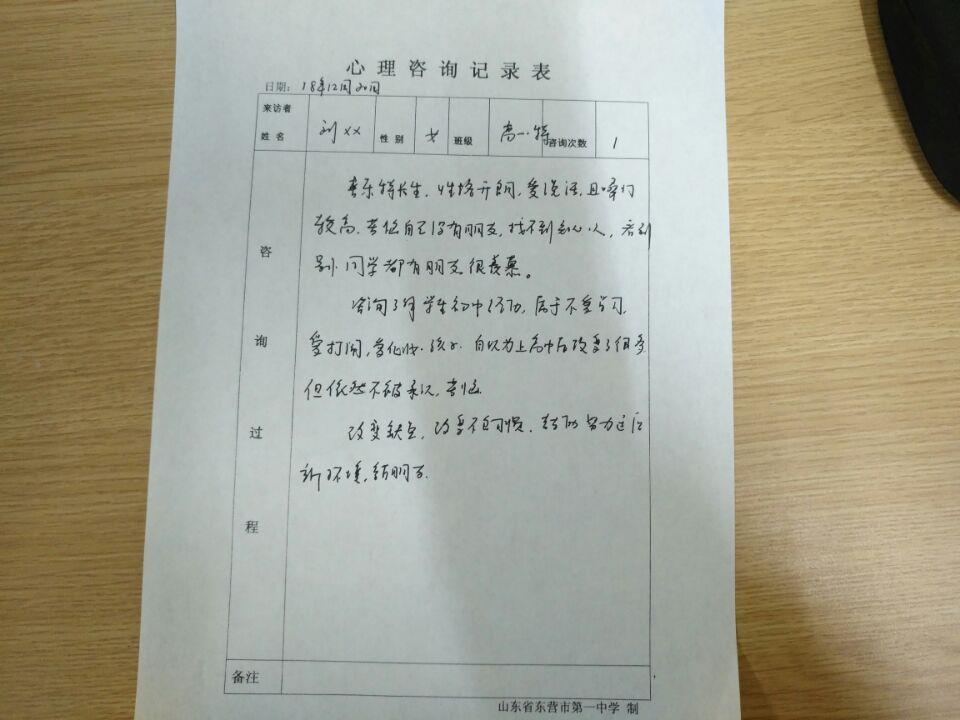 心理咨询记录表
日期: 18年12月20日
来访者
姓名 刘×× 性别 女 班级 高一.特 咨询次数 1
咨询过程
音乐特长生,性格开朗,爱说话,且嗓门
较高,苦恼自己没有朋友,找不到知心人,看到
别的同学都有朋友很羡慕。
咨询了解学生初中经历,属于不爱学习,
爱打闹, 孩子.自以为上高中后改变了很多
但依然不被承认,苦恼.
改变缺点,改变不良习惯, 努力适应
新环境,结朋友.
备注
山东省东营市第一中学 制